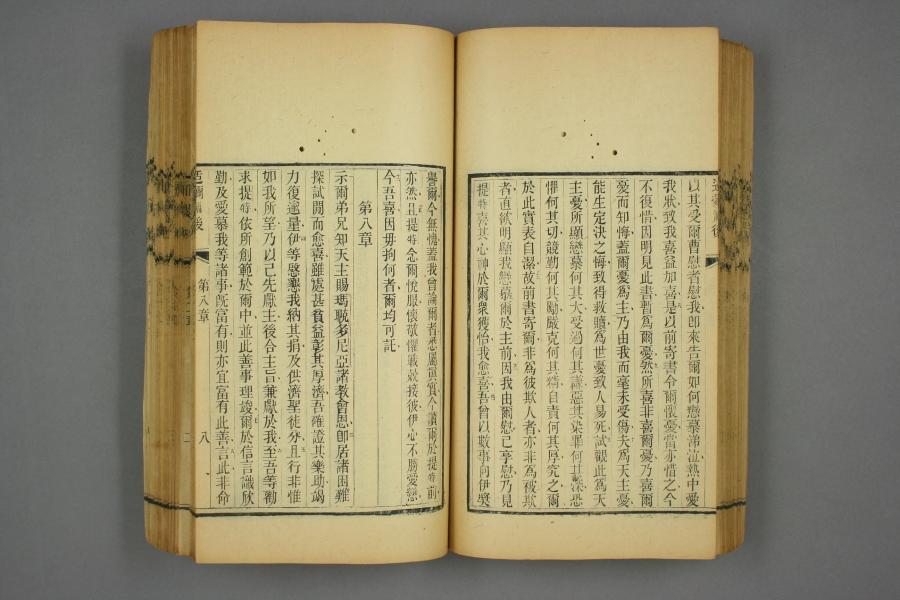 以其受爾曹慰者慰我卽來吿爾如何戀慕涕泣熱中愛
我狀致我喜益加喜是以前寄書令爾懷憂當亦惜之今
不復惜因明見此書暫爲爾憂然所喜非喜爾憂乃喜爾
憂而知悔蓋爾憂爲主乃由我而毫未受傷夫爲天主憂
能生定決之悔致得救贖爲世憂致人易死試觀此爲天
主憂所顯戀慕何其大受過何其謙惡其染罪何其深恐
懼何其切競勤何其勵嚴克何其精自責何其厚究之爾
於此實表自潔故前書寄爾非爲彼欺人者亦非爲被欺
者直欲明顯我戀慕爾於主前因我由爾慰已享慰乃見
提特喜其心神於爾衆獲怡我愈喜吾曾以數事向伊獎
譽爾今無愧蓋我曾論爾者悉屬眞實今讚爾於提特前
亦然且提特念爾悅服懷敬懼戰兢接彼伊心不勝愛戀
今吾喜因毋拘何者爾均可託
第八章
示爾弟兄知天主賜瑪耽多尼亞諸敎會恩卽居諸困難
探試閒而愈喜雖處甚貧益彰其厚濟吾確證其樂助竭
力復逾量伊等慇懇我納其捐及供濟聖徒分且行非惟
如我所望乃以己先獻主後合主旨兼獻於我至吾等勸
求提特依所創範於爾中並此善事理竣爾於信言識欣
勤及愛慕我等諸事旣富有則亦宜富有此善言此非命
後
第八章
八